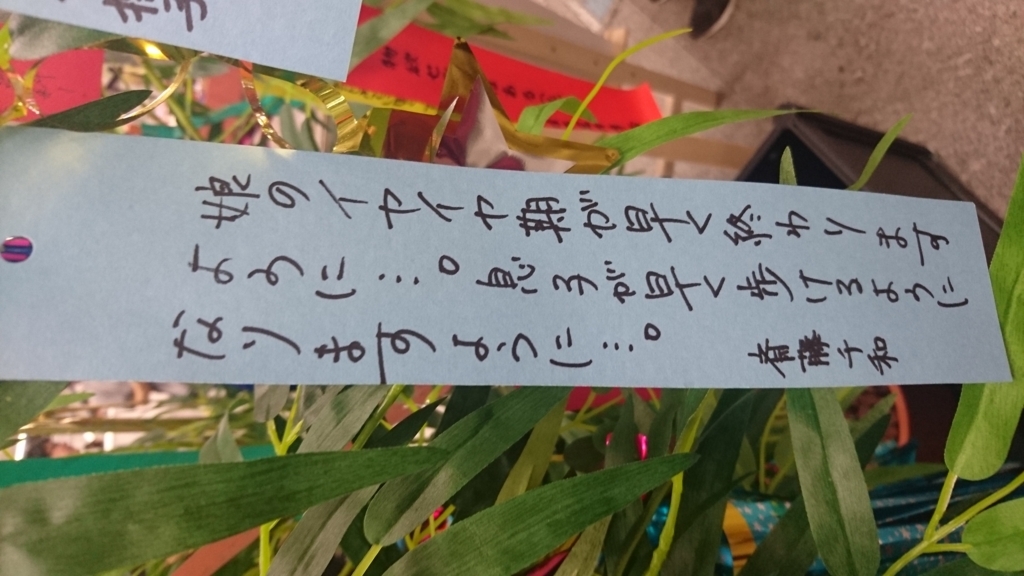 娘のイヤイヤ期が早く終わります
ように…。息子が早く歩けるように
なりますように…。
斎藤千和